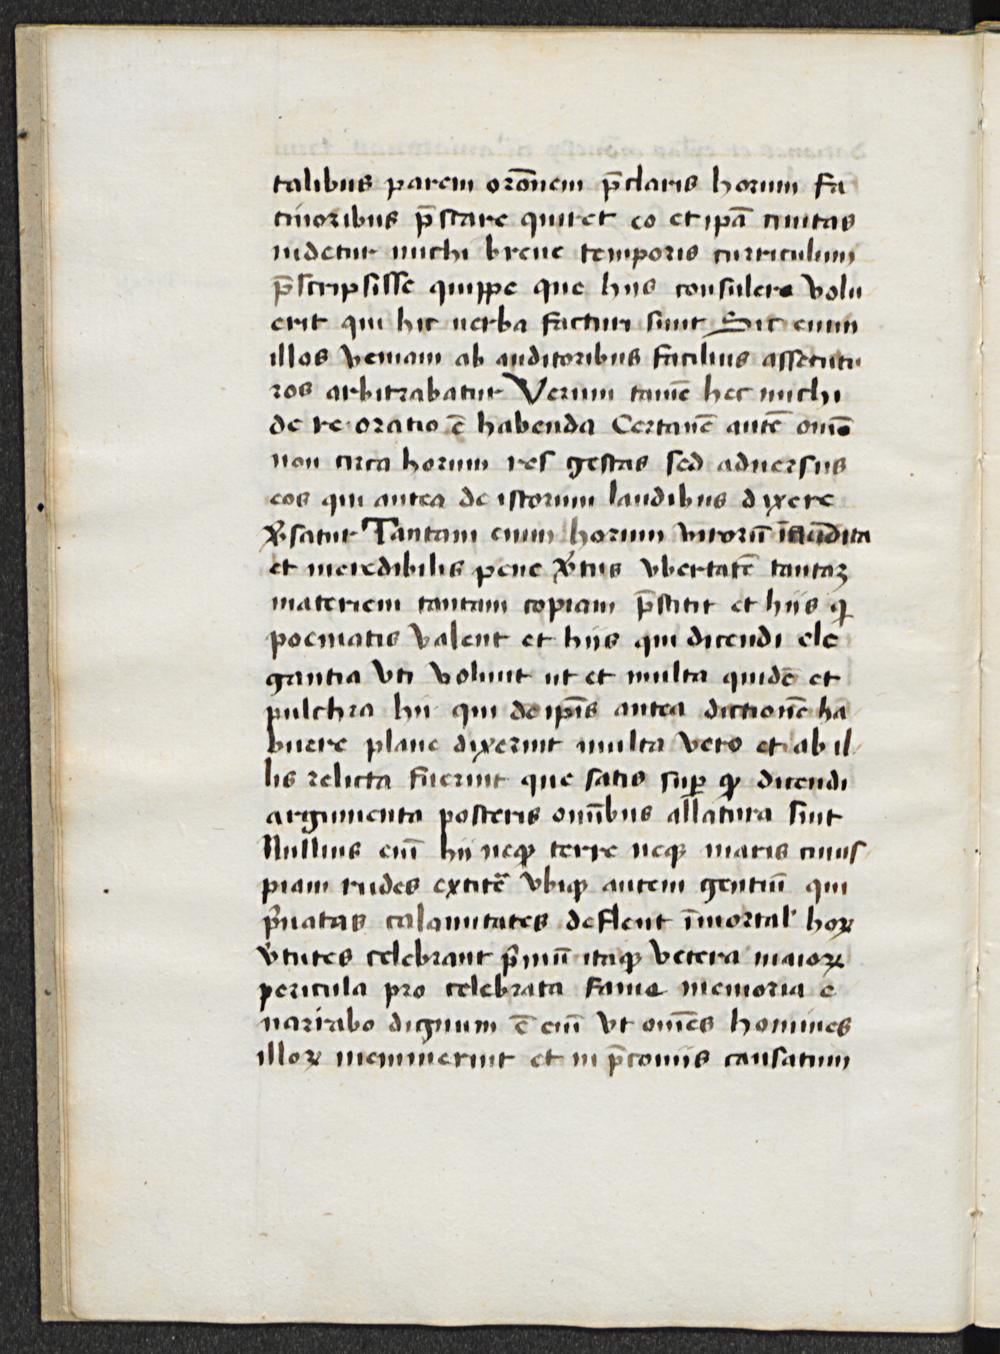 talibus parem orōnem p̄claris horum fa
cinoribus p̄stare quiret eo et ipā ciuitas
uidetur michi breue temporis curriculum
p̄scripsisse quippe que hijs consulere volu
erit qui hic uerba facturi sunt Sic enim
illos veniam ab auditoribus facilius assecutu
ros arbitrabatur Verum tamē hec michi
de re oratio ē habenda Certamē autē omē
non circa horum res gestas sed aduersus
eos qui antea de istorum laudibus dixere
v̓satur Tantam enim horum virorū īaudita
et incredibilis pene v̓tus vbertatē tantaꝫ
materiem tantam copiam p̄stitit et hijs q̓
poematis valent et hijs qui dicendi ele
gantia vti volunt ut et multa quidē et
pulchra hii qui de ip̄is antea dictionē ha
buere plane dixerint multa vero et ab il
lis relicta fuerint que satis suꝑ qꝫ dicendi
argumenta posteris omībus allatura sint
Nullius eīm hii neqꝫ terre neqꝫ maris cuius
piam rudes extitē̓ vbiqꝫ autem gentiū qui
p̓uatas calamitates deflent īmortal' hoꝝ
v̓tutes celebrant p̓mū itaqꝫ vetera maioꝝ
pericula pro celebrata fame memoria e
narrabo dignum ē eīm vt om̄es homines
illoꝝ meminerint et in p̄coniis causatum